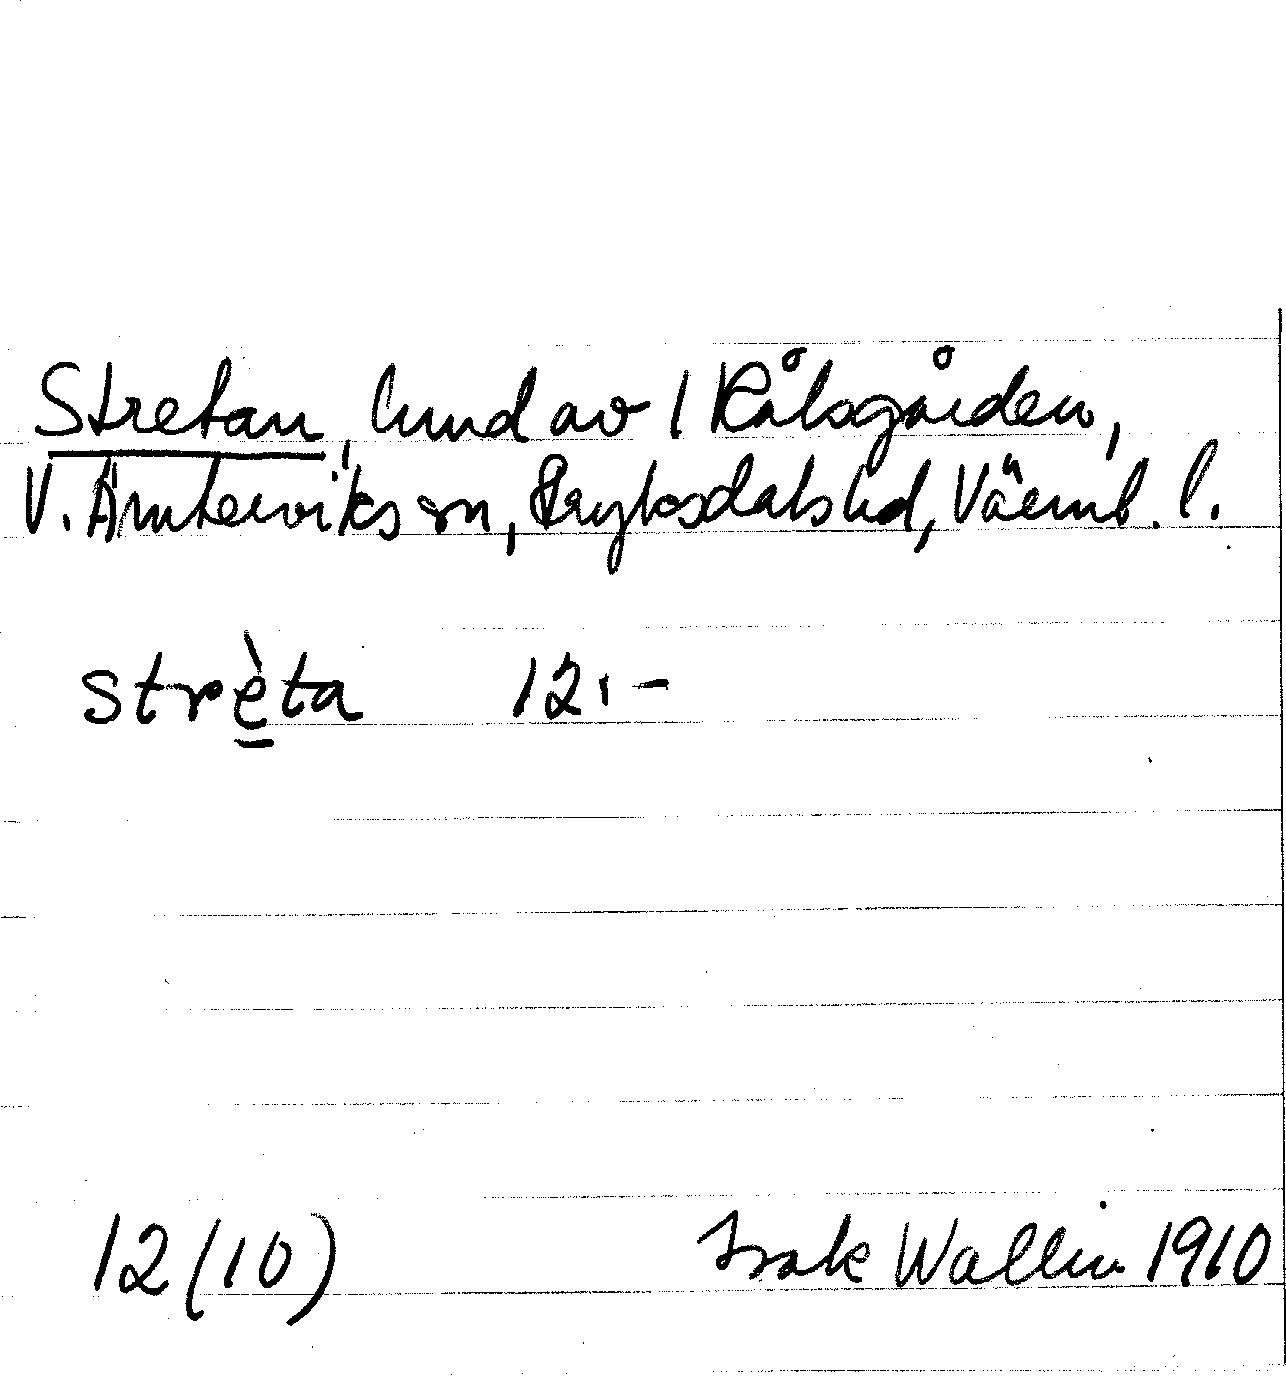 Stretan, hmd av 1 Rålsgården,
V. Ämterviks sn, Fryksdals hd, Värml. l.
strèta 12.-
12 (10) Isak Wallin 1910